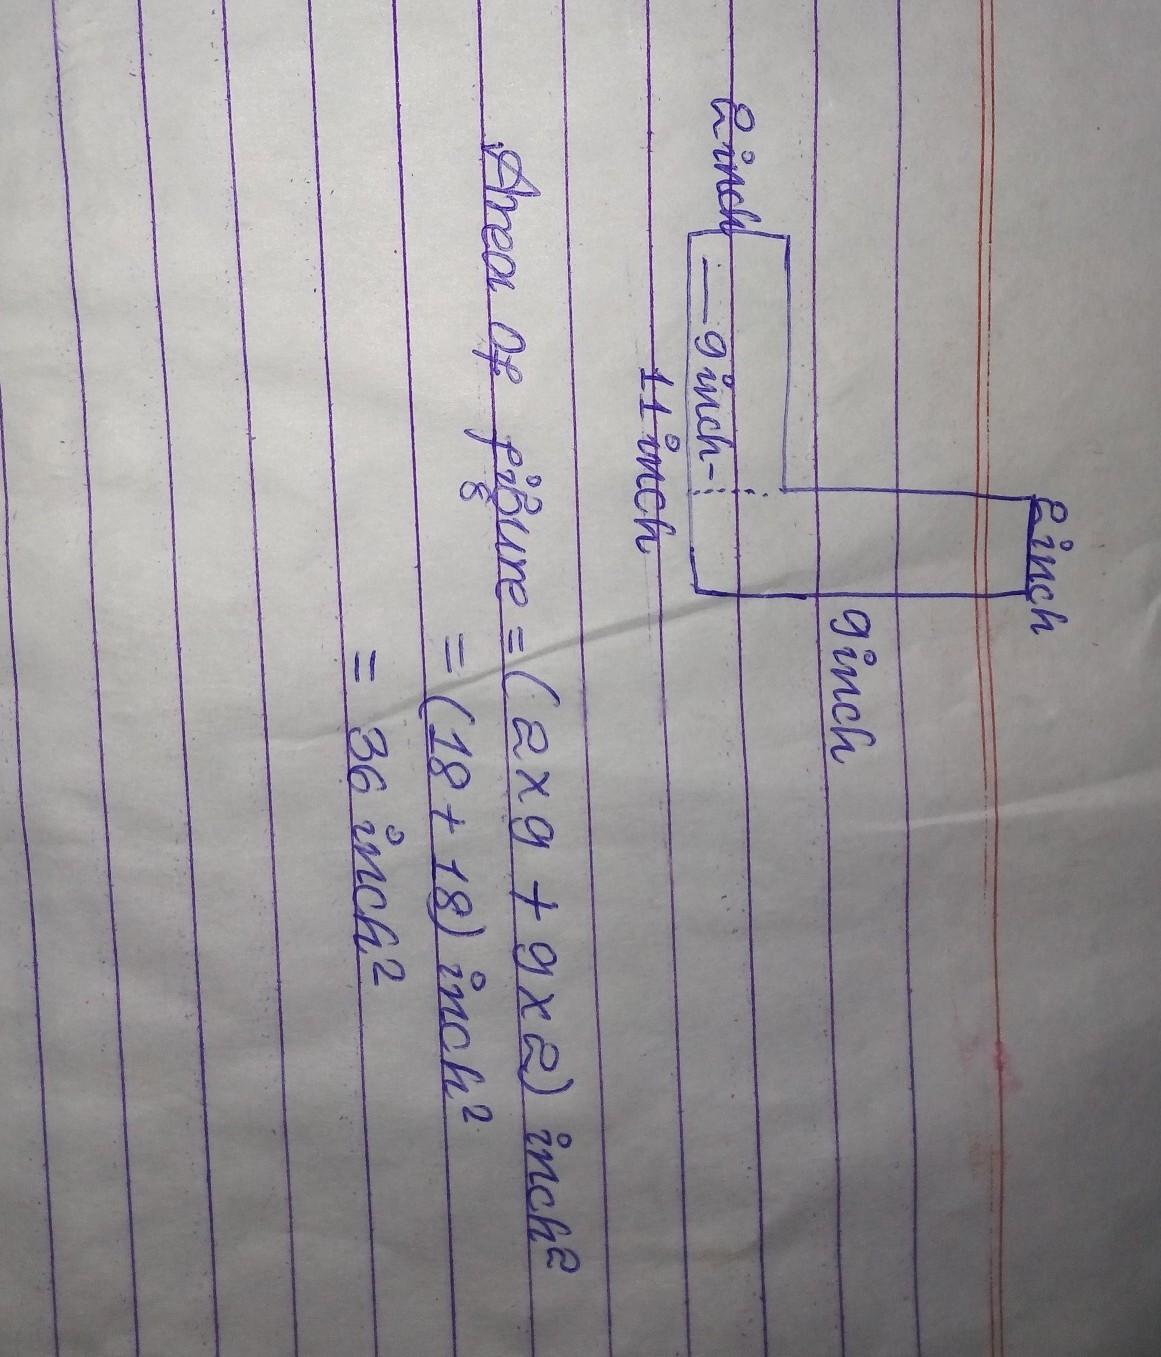 2 inch
2 inch
9 inch
9 inch
11 inch
Area Of figure = (2 x 9 + 9 x 2) inch²
= (18 + 18) inch²
= 36 inch²